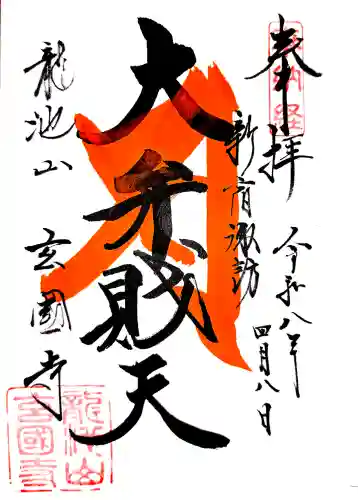 奉拝
奉納経
令和八年
四月八日
新宿諏訪
大弁財天
龍池山
玄國寺
龍池山
玄國寺